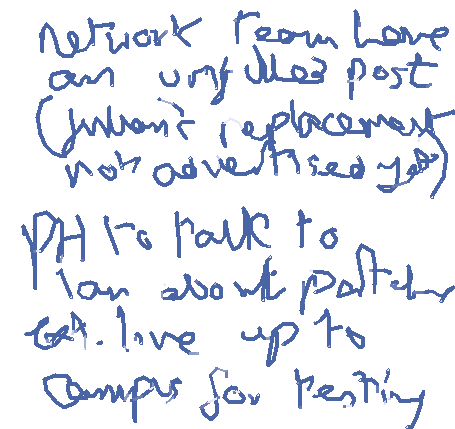 network team have
an unfilled post
(Julian's replacement
not advertised yet)
PH to talk to
Ian about
live up to
campus for testing